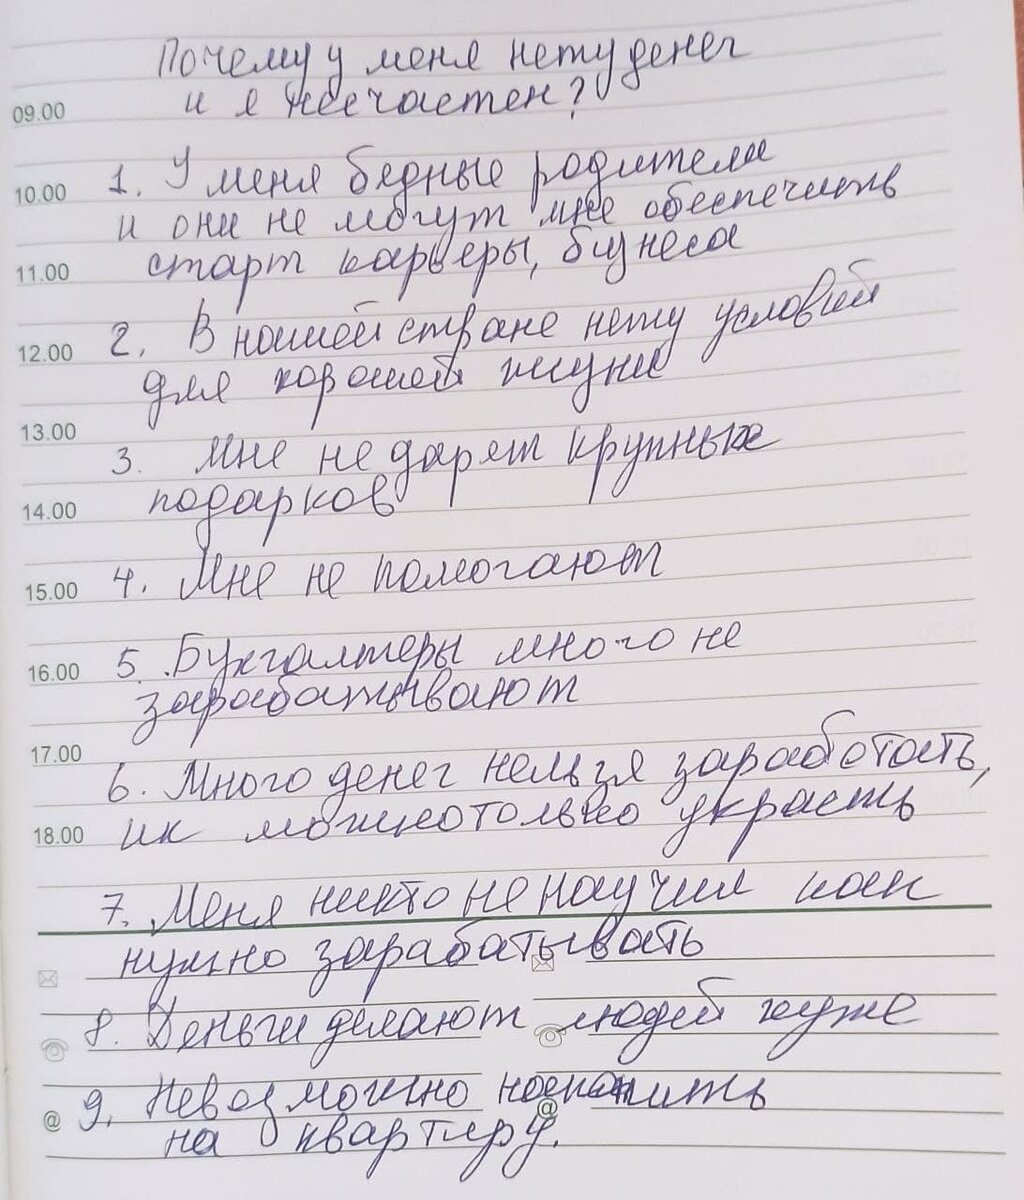 Почему у меня нету денег
09.00 и я несчастен?
10.00 1. У меня бедные родители
и они не могут мне обеспечить
11.00 старт карьеры, бизнеса
12.00 2. В нашей стране нету условий
для хорошей жизни
13.00
3. Мне не дарят крупных
14.00 подарков
15.00 4. Мне не помогают
16.00 5. Бухгалтеры много не
зарабатывают
17.00
6. Много денег нельзя заработать,
18.00 их можно только украсть
7. Меня никто не научил как
нужно зарабатывать
8. Деньги делают людей хуже
@ 9. Невозможно накопить @
на квартиру.